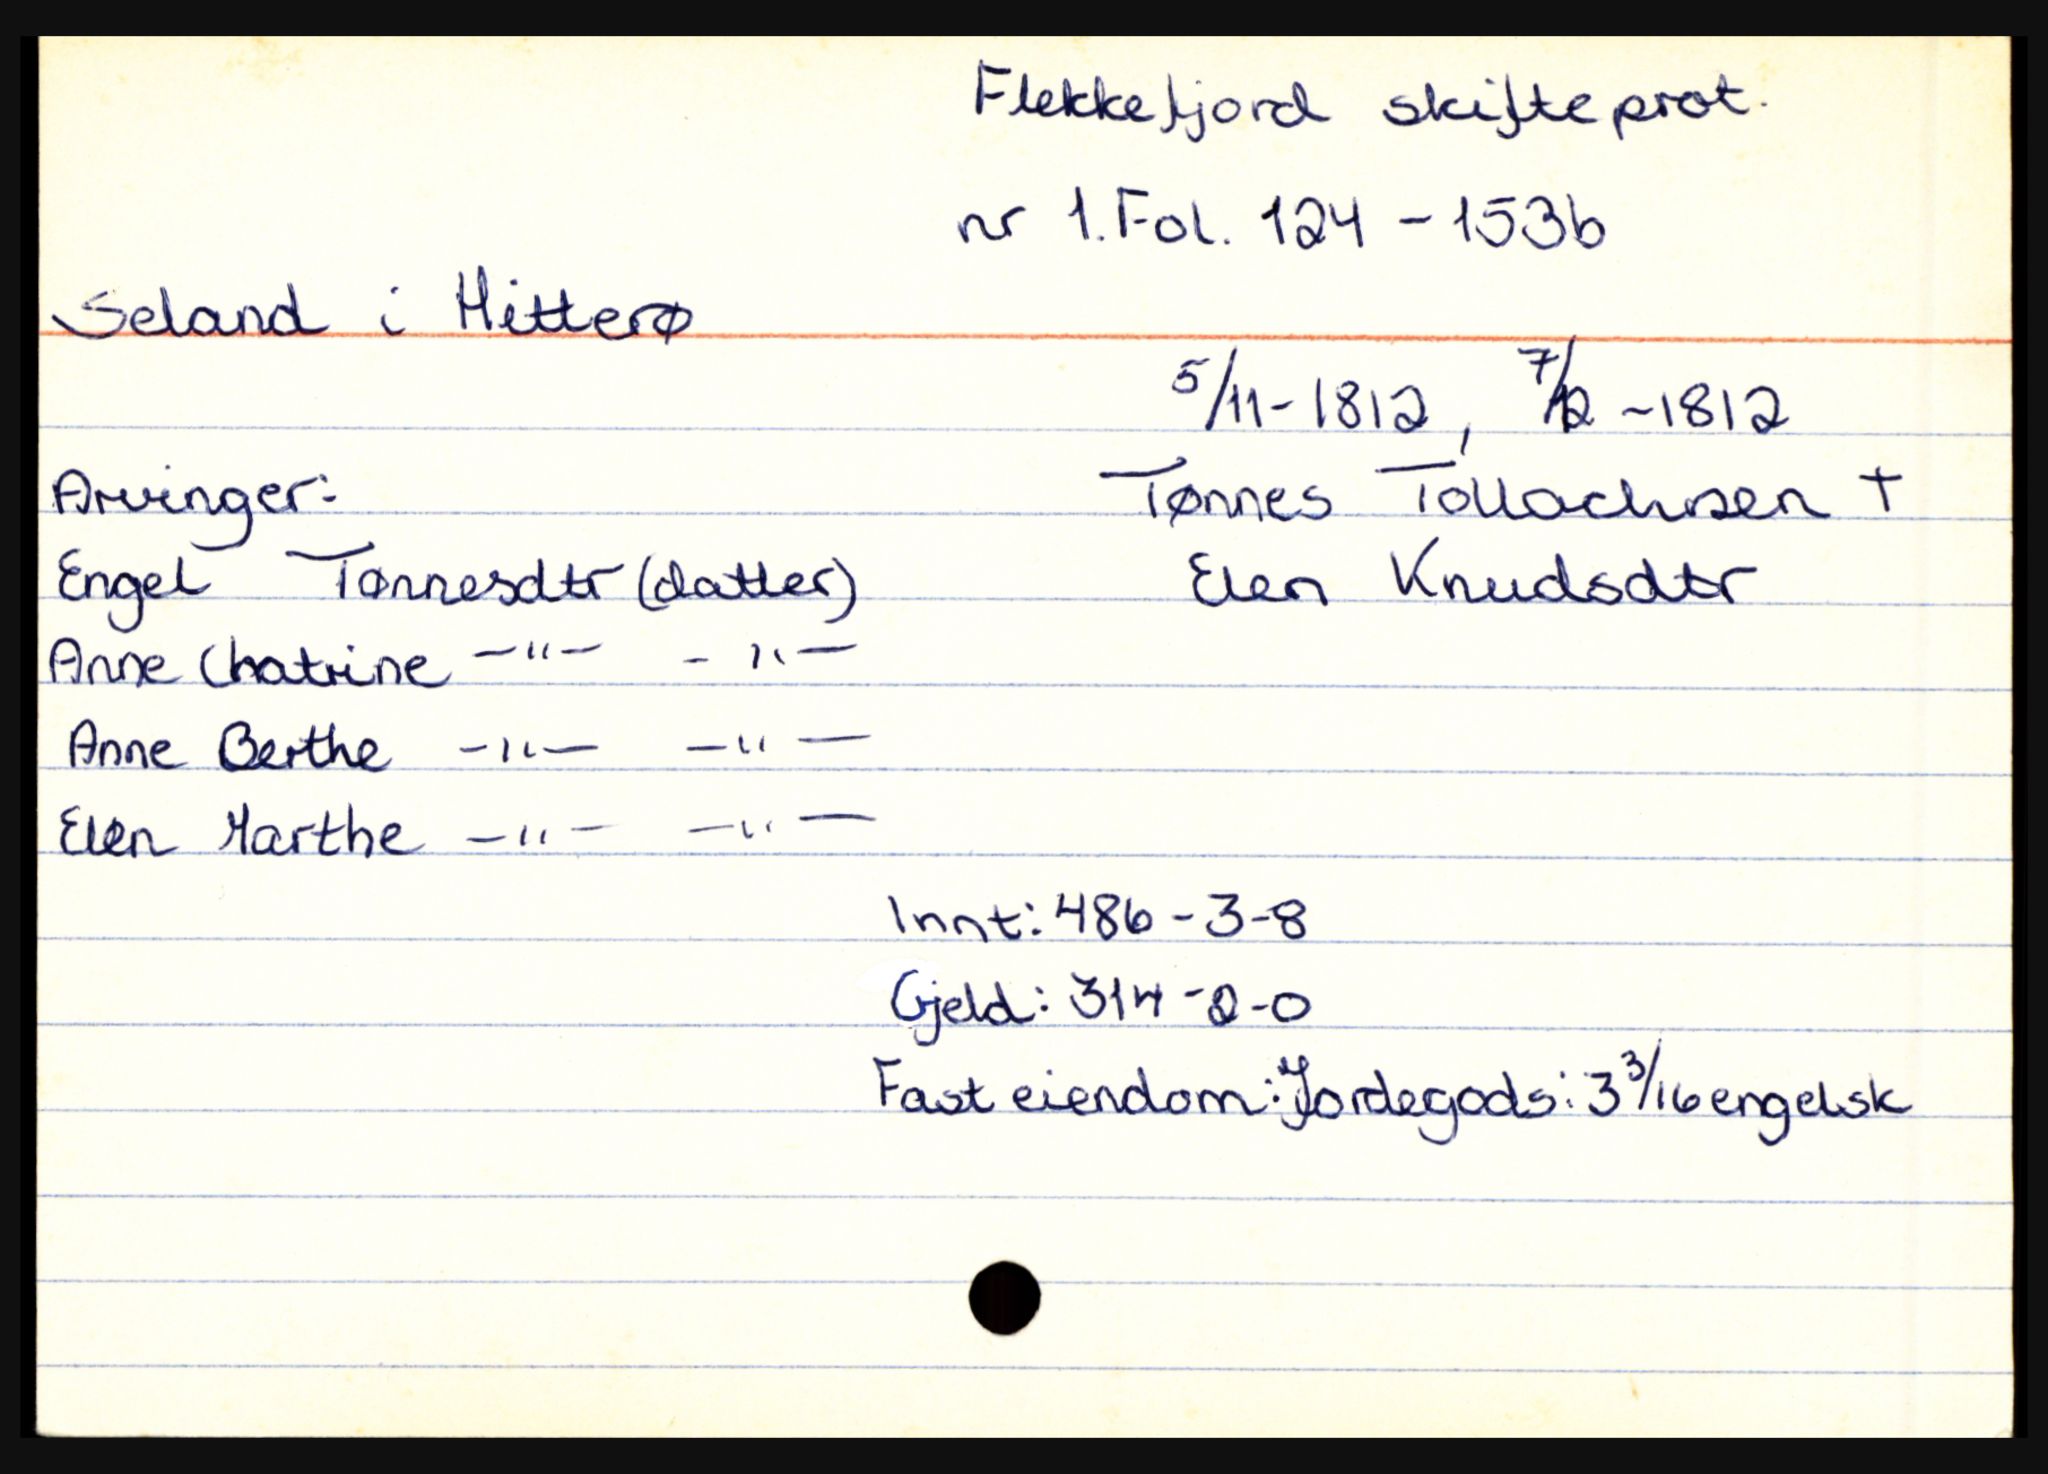 Flekkefjord skifteprot.
nr 1. Fol. 124 - 153b
Seland i Hitterø
5/11-1812, 7/12 -1812
Arvinger: Tønnes Tollachsen +
Engel Tønnesdtr (datter) Elen Knudsdtr
Anne Chatrine -"- -"-
Anne Berthe -"- -"-
Elen Marthe -"- -"-
Innt: 486-3-8
Gjeld: 314-2-0
Fast eiendom: Jordegods: 3 3/16 engelsk